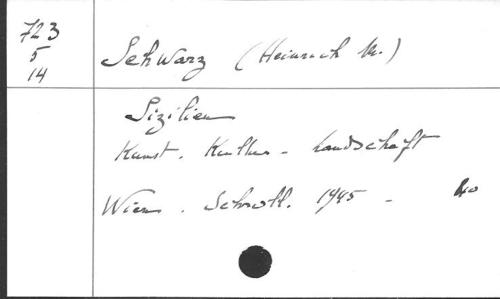 723
5
14
Schwarz (Heinrich M.)
Sizilien
Kunst. Kultur - Landschaft
Wien. Schroll. 1945 - 40